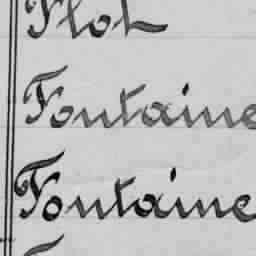 Flot
Fontaine
Fontaine